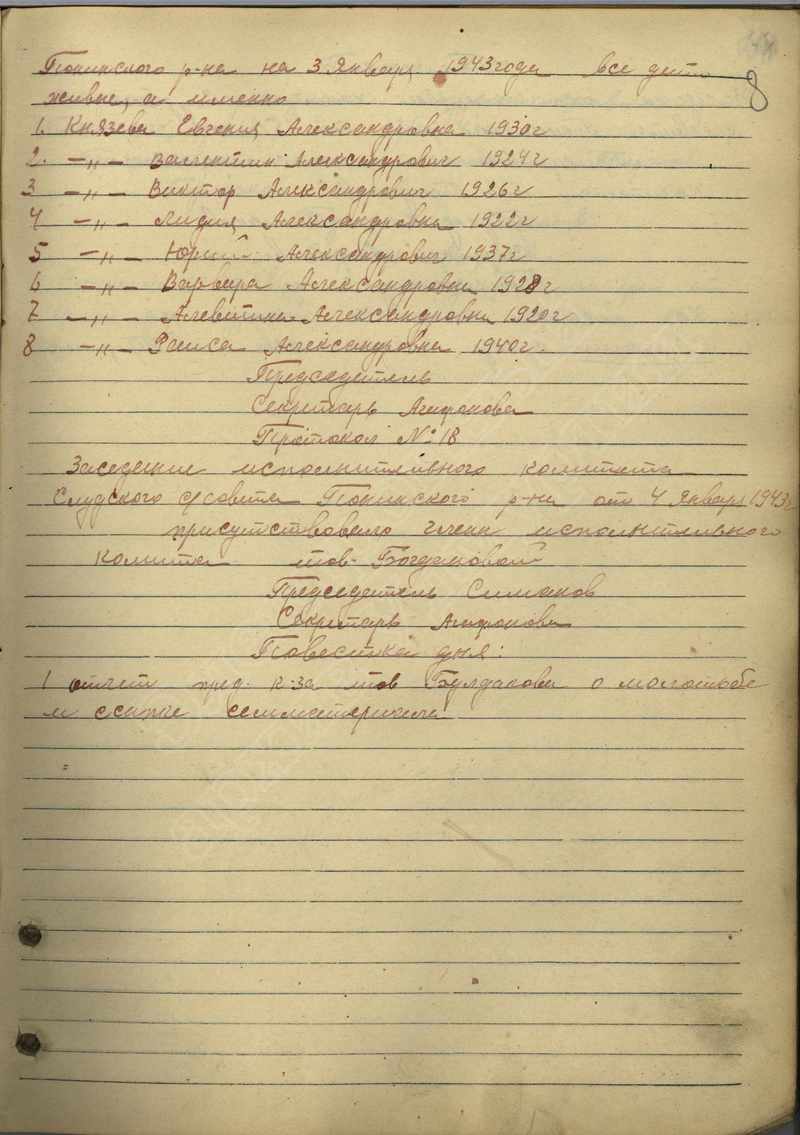 8
Понинского р-на на 3 Января 1943 года все дети
живые, а именно
1. Князева Евгения Александровна 1930 г
2. -„- Валентин Александрович 1924 г
3 -„- Виктор Александрович 1926 г
4 -„- Лидия Александровна 1922 г
5 -„- Юрий Александрович 1937 г
6 -„- Варвара Александровна 1928 г
7 -„- Алевтина Александровна 1920 г
8 -„- Раиса Александровна 1940 г.
Председатель
Секретарь Агафонова
Протокол № 18
Заседание исполнительного комитета
Слудского с/совета Понинского р-на от 4 Января 1943 г
присутствовало члены исполнительного
комитета тов. Богдановой
Председатель Симанов
Секретарь Агафонова
Повестка дня:
1 отчет пред. к-за тов Булдакова о молотьбе
и ссыпке семматериала